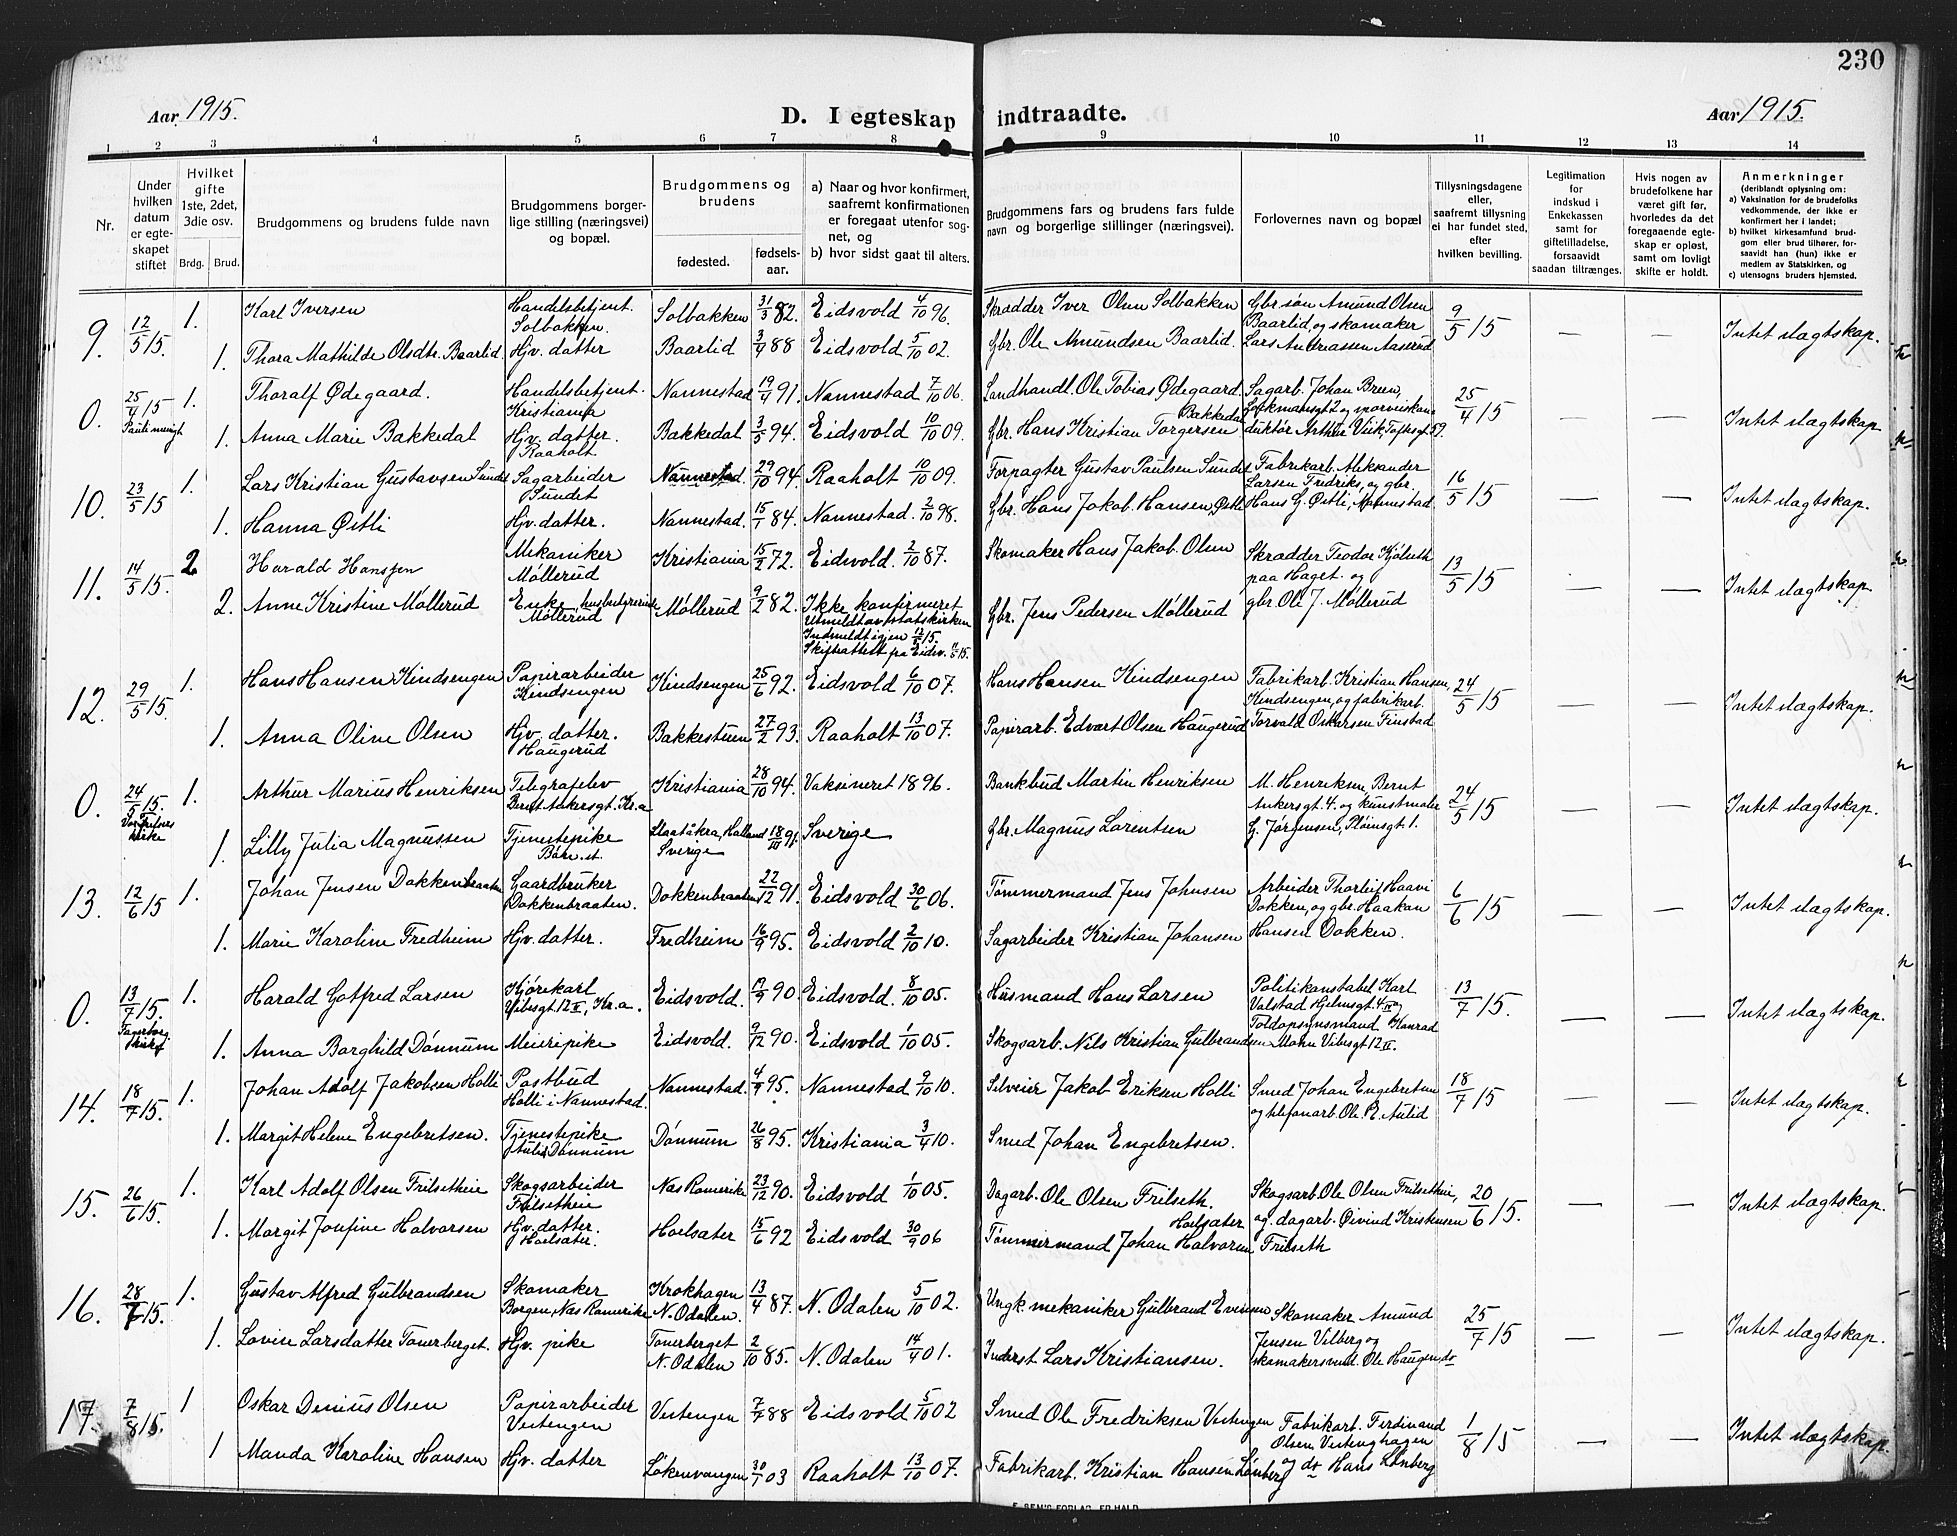 230
Aar 1915.
D. I egteskap indtraadte.
Aar 1915.
1 2 3 4 5 6 7 8 9 10 11 12 13 14
Nr.
Under hvilken datum er egteskapet stiftet
Hvilket gifte 1ste, 2det, 3die osv.
Brdg. Brud.
Brudgommens og brudens fulde navn
Brudgommens borgerlige stilling (næringsvei) og bopæl.
Brudgommens og brudens
fødested.
fødselsaar.
a) Naar og hvor konfirmert, saafremt konfirmationen er foregaat utenfor sognet, og
b) hvor sidst gaat til alters.
Brudgommens fars og brudens fars fulde navn og borgerlige stillinger (næringsvei).
Forlovernes navn og bopæl
Tillysningsdagene eller, saafremt tillysning ei har fundet sted, efter hvilken bevilling.
Legitimation for indskud i Enkekassen samt for giftetilladelse, forsaavidt saadan tiltrænges.
Hvis nogen av brudefolkene har været gift før, hvorledes da det foregaaende egteskap er opløst, samt om lovligt skifte er holdt.
Anmerkninger
(deriblandt oplysning om:
a) Vaksination for de brudefolks vedkommende, der ikke er konfirmert her i landet;
b) hvilket kirkesamfund brudgom eller brud tilhører, forsaavidt han (hun) ikke er medlem av Statskirken, og
c) utensogns bruders hjemsted.
9. 12/5 15. 1. Karl Iversen Handelsbetjent. Solbakken. Solbakken 31/3 82. Eidsvold 4/10 96. Skrædder Iver Olsen Solbakken Gbr. søn Amund Olsen Baarlid, og skomaker Lars Andreassen Aaserud 9/5 15 — — Intet slægtskap.
1. Thora Mathilde Olsdtr. Baarlid. Hjv. datter Baarlid 3/4 88 Eidsvold 5/10 02. Gbr. Ole Amundsen Baarlid.
0. 25/4 15 1. Thoralf Ødegaard. Handelsbetjent. Kristiania Nannestad 19/4 91. Nannestad 7/10 06. Landhandl. Ole Tobias Ødegaard Sagarb. Johan Breen, 25/4 15 — — Intet slægtskap.
1. Anna Marie Bakkedal Hjv. datter. Raaholt Bakkedal 3/5 94. Eidsvold 10/10 09. Gbr. Hans Kristian Torgersen Bakkedal
10. 23/5 15 1. Lars Kristian Gustavsen Sundet Sagarbeider Sundet Nannestad. 29/10 94. Raaholt 10/10 09. Forpagter Gustav Paulsen Sundet Fabrikarb. Aleksander Larsen Fredriks, og gbr. Hans G. Østli, Nannestad. 16/5 15 — — Intet slægtskap.
1. Hanna Østli Hjv. datter. Nannestad. 15/1 84. Nannestad. 2/10 98. Gbr. Hans Jakob Hansen, Østli
11. 14/5 15. 2 Harald Hanssen Mekaniker Møllerud Kristiania 15/2 72. Eidsvold 2/10 87. Skomaker Hans Jakob Olsen Skrædder Teodor Kjølseth paa Haget. og gbr. Ole J. Møllerud 13/5 15 — — Intet slægtskap.
2. Anne Kristine Møllerud Enke, Møllerud Møllerud 9/2 82. Ikke konfirmeret Utmeldt av statskirken Indmeldt igjen Skifteattest fra Eidsv. Gbr. Jens Pedersen Møllerud
12. 29/5 15. 1. Hans Hansen Kindsengen Papirarbeider Kindsengen Kindsengen 25/6 92. Eidsvold 6/10 07. Hans Hansen Kindsengen Fabrikarb. Kristian Hansen, Kindsengen, og fabrikarb. Torvald Oskarsen Finstad 24/5 15 — — Intet slægtskap.
1. Anna Oline Olsen Hjv. datter. Haugerud Bakkestuen 27/2 93. Raaholt 13/10 07. Papirarb. Edvart Olsen Haugerud
0. 24/5 15. Vor Frelsers kirke 1. Arthur Marius Henriksen Telegrafelev Bernt Ankersgt. Kr.a Kristiania 28/10 94. Vaksineret 1896. Bankbud Martin Henriksen M. Henriksen, Bernt Ankersgt. 4. og kunstmaler G. Jørgensen, Pløensgt. 1. 24/5 15 — — Intet slægtskap.
1. Lilly Julia Magnussen Tjenestepike Slaatåkra, Halland Sverige Sverige Gbr. Magnus Lorentsen
13. 12/6 15 1. Johan Jensen Dokkenbraaten Gaardbruker Dokkenbraaten. Dokkenbraaten 22/12 91. Eidsvold 30/6 06. Tømmermand Jens Johnsen Arbeider Thorleif Haavi Dokken, og gbr. Haakan Hansen Dokken. 6/6 15 — — Intet slægtskap.
1. Marie Karoline Fredheim Hjv. datter. Fredheim 16/9 95. Eidsvold 2/10 10. Sagarbeider Kristian Johansen
0. 13/7 15. Fagerborg kirke 1. Harald Gotfred Larsen Kjørekarl Vibesgt. 12 II, Kr.a. Eidsvold. 17/9 90. Eidsvold 8/10 05. Husmand Hans Larsen Politikonstabel Karl Valstad Hjelmsgt. 4 og Toldopsynsmand Konrad Mohn Vibesgt 12 II. 13/7 15. — — Intet slægtskap.
1. Anna Borghild Dønnum Meieripike Eidsvold. 9/12 90. Eidsvold 1/10 05. Skogsarb. Nils Kristian Gulbrandsen
14. 18/7 15. 1. Johan Adolf Jakobsen Holli Postbud Holli i Nannestad. Nannestad. 4/9 95. Nannestad 9/10 10. Selveier Jakob Eriksen Holli Smed Johan Engebretsen og telefonarb. Ole P. Aulid 18/7 15 — — Intet slægtskap.
1. Margit Helene Engebretsen. Tjenestepike Dønnum Dønnum 26/8 95. Kristiania 3/4 10. Smed Johan Engebretsen.
15. 26/6 15. 1. Karl Adolf Olsen Frilsetheie Skogsarbeider Frilsetheie Næs Romerike 23/12 90. Eidsvold 1/10 05. Dagarb. Ole Olsen Frilseth. Skogsarb. Ole Olsen Frilsetheie, og dagarb. Øivind Kristensen Frilseth 20/6 15. — — Intet slægtskap.
1. Margit Josefine Halvorsen Hjv. datter. Hoelsæter. Hoelsæter 15/6 92 Eidsvold 30/9 06 Tømmermand Johan Halvorsen Hoelsæter
16. 28/7 15. 1. Gustav Alfred Gulbrandsen Skomaker Borgen, Næs Romerike Krokhagen N. Odalen. 13/4 87. N. Odalen 5/10 02. Ungk. mekaniker Gulbrand Evensen Skomaker Amund Jensen Vilberg og skomakersvend Ole Haugen do 25/7 15 — — Intet slægtskap.
1. Lovise Larsdatter Tonerberget. Hjv. pike Tonerberget N. Odalen 2/10 85. N. Odalen 14/4 01. Inderst Lars Kristiansen.
17. 7/8 15. 1 Oskar Denius Olsen Papirarbeider Vestengen Vestengen 7/7 88 Eidsvold 5/10 02 Smed Ole Fredriksen Vestengen Fabrikarb. Ferdinand Olsen Vestenghagen og do Hans Lønberg 1/8 15 — — Intet slægtskap.
1 Manda Karoline Hansen Hjv. datter Løkenvangen 30/1 03 Raaholt 13/10 07. Fabrikarb. Kristian Hansen Lønberg